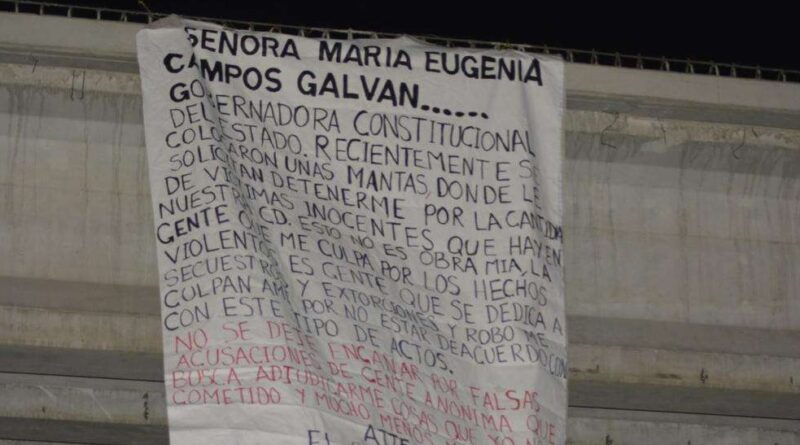 SEÑORA MARIA EUGENIA
CAMPOS GALVAN......
GOBERNADORA CONSTITUCIONAL
DEL ESTADO. RECIENTEMENTE SE
COLO UNAS MANTAS, DONDE LE
SOLICITARON DETENERME POR LA CANTIDA
DE VICTIMAS INOCENTES QUE HAY EN
NUESTRA CD. ESTO NO ES OBRA MIA, LA
GENTE QUE ME CULPA POR LOS HECHOS
VIOLENTOS ES GENTE QUE SE DEDICA A
SECUESTROS Y EXTORCIONES Y ROBO ME
CULPAN AMI POR NO ESTAR DEACUERDO CON
CON ESTE TIPO DE ACTOS.
NO SE DEJE ENGAÑAR POR FALSAS
ACUSACIONES DE GENTE ANONIMA QUE
BUSCA ADJUDICARME COSAS QUE YO NO
COMETIDO Y MUCHO MENOS
ATTE
EL